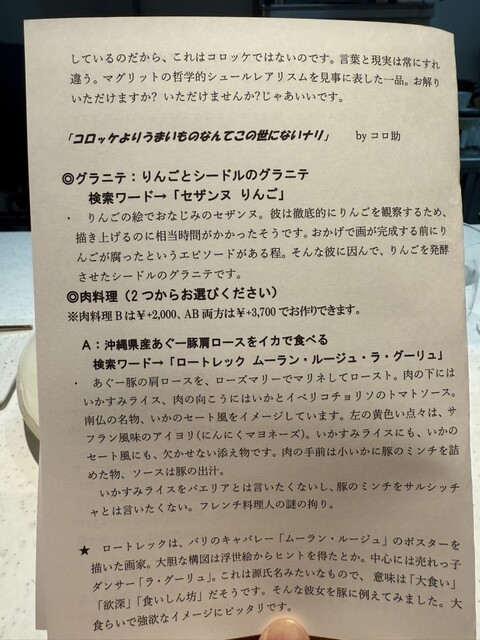 しているのだから、これはコロッケではないのです。言葉と現実は常にすれ
違う。マグリットの哲学的シュールレアリスムを見事に表した一品。お解り
いただけますか? いただけませんか?じゃあいいです。
「コロッケよりうまいものなんてこの世にないナリ」 by コロ助
◎グラニテ：りんごとシードルのグラニテ
検索ワード→「セザンヌ りんご」
・ りんごの絵でおなじみのセザンヌ。彼は徹底的にりんごを観察するため、
描き上げるのに相当時間がかかったそうです。おかげで画が完成する前にり
んごが腐ったというエピソードがある程。そんな彼に因んで、りんごを発酵
させたシードルのグラニテです。
◎肉料理（２つからお選びください）
※肉料理 B は￥+2,000、AB 両方は￥+3,700 でお作りできます。
A：沖縄県産あぐー豚肩ロースをイカで食べる
検索ワード→「ロートレック ムーラン・ルージュ・ラ・グーリュ」
・ あぐー豚の肩ロースを、ローズマリーでマリネしてロースト。肉の下には
いかすみライス、肉の向こうにはいかとイベリコチョリソのトマトソース。
南仏の名物、いかのセート風をイメージしています。左の黄色い点々は、サ
フラン風味のアイヨリ(にんにくマヨネーズ)。いかすみライスにも、いかの
セート風にも、欠かせない添え物です。肉の手前は小いかに豚のミンチを詰
めた物、ソースは豚の出汁。
いかすみライスをパエリアとは言いたくないし、豚のミンチをサルシッチ
ャとは言いたくない。フレンチ料理人の謎の拘り。
★ ロートレックは、パリのキャバレー「ムーラン・ルージュ」のポスターを
描いた画家。大胆な構図は浮世絵からヒントを得たとか。中心には売れっ子
ダンサー「ラ・グーリュ」。これは源氏名みたいなもので、意味は「大食い」
「欲深」「食いしん坊」だそうです。そんな彼女を豚に例えてみました。大
食らいで強欲なイメージにピッタリです。